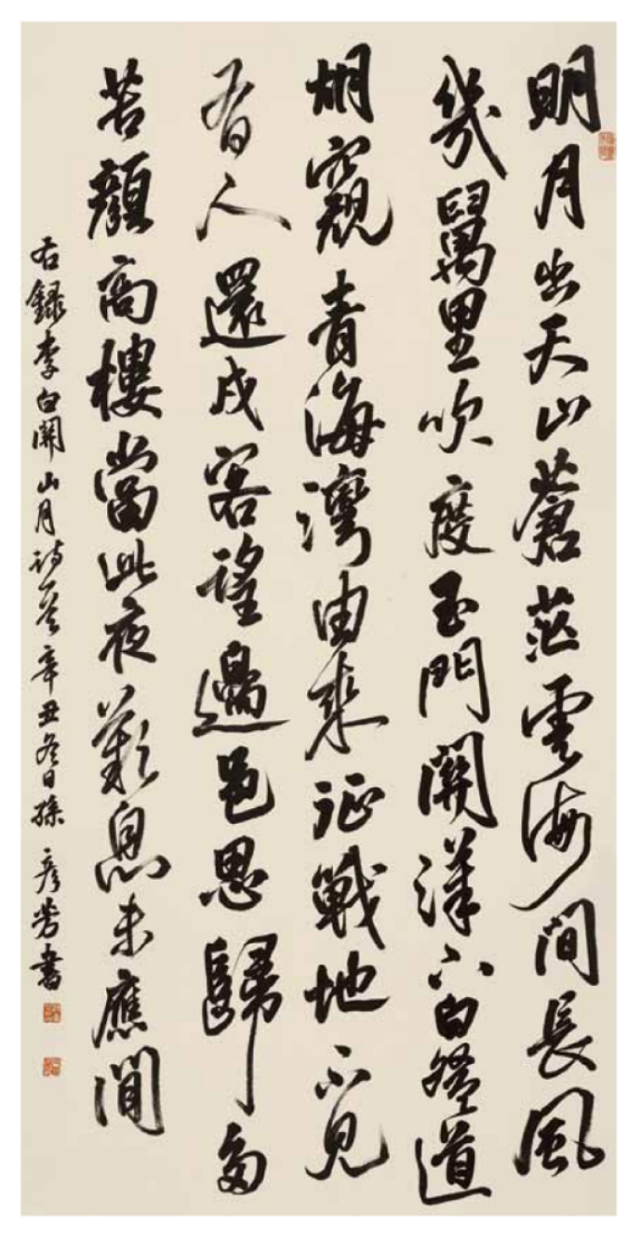 明月出天山蒼茫雲海間長風
幾萬里吹度玉門關漢下白登道
胡窺青海灣由來征戰地不見
有人還戍客望邊邑思歸多
苦顏高樓當此夜歎息未應閒
右錄李白關山月詩一首辛丑冬日孫彥芳書